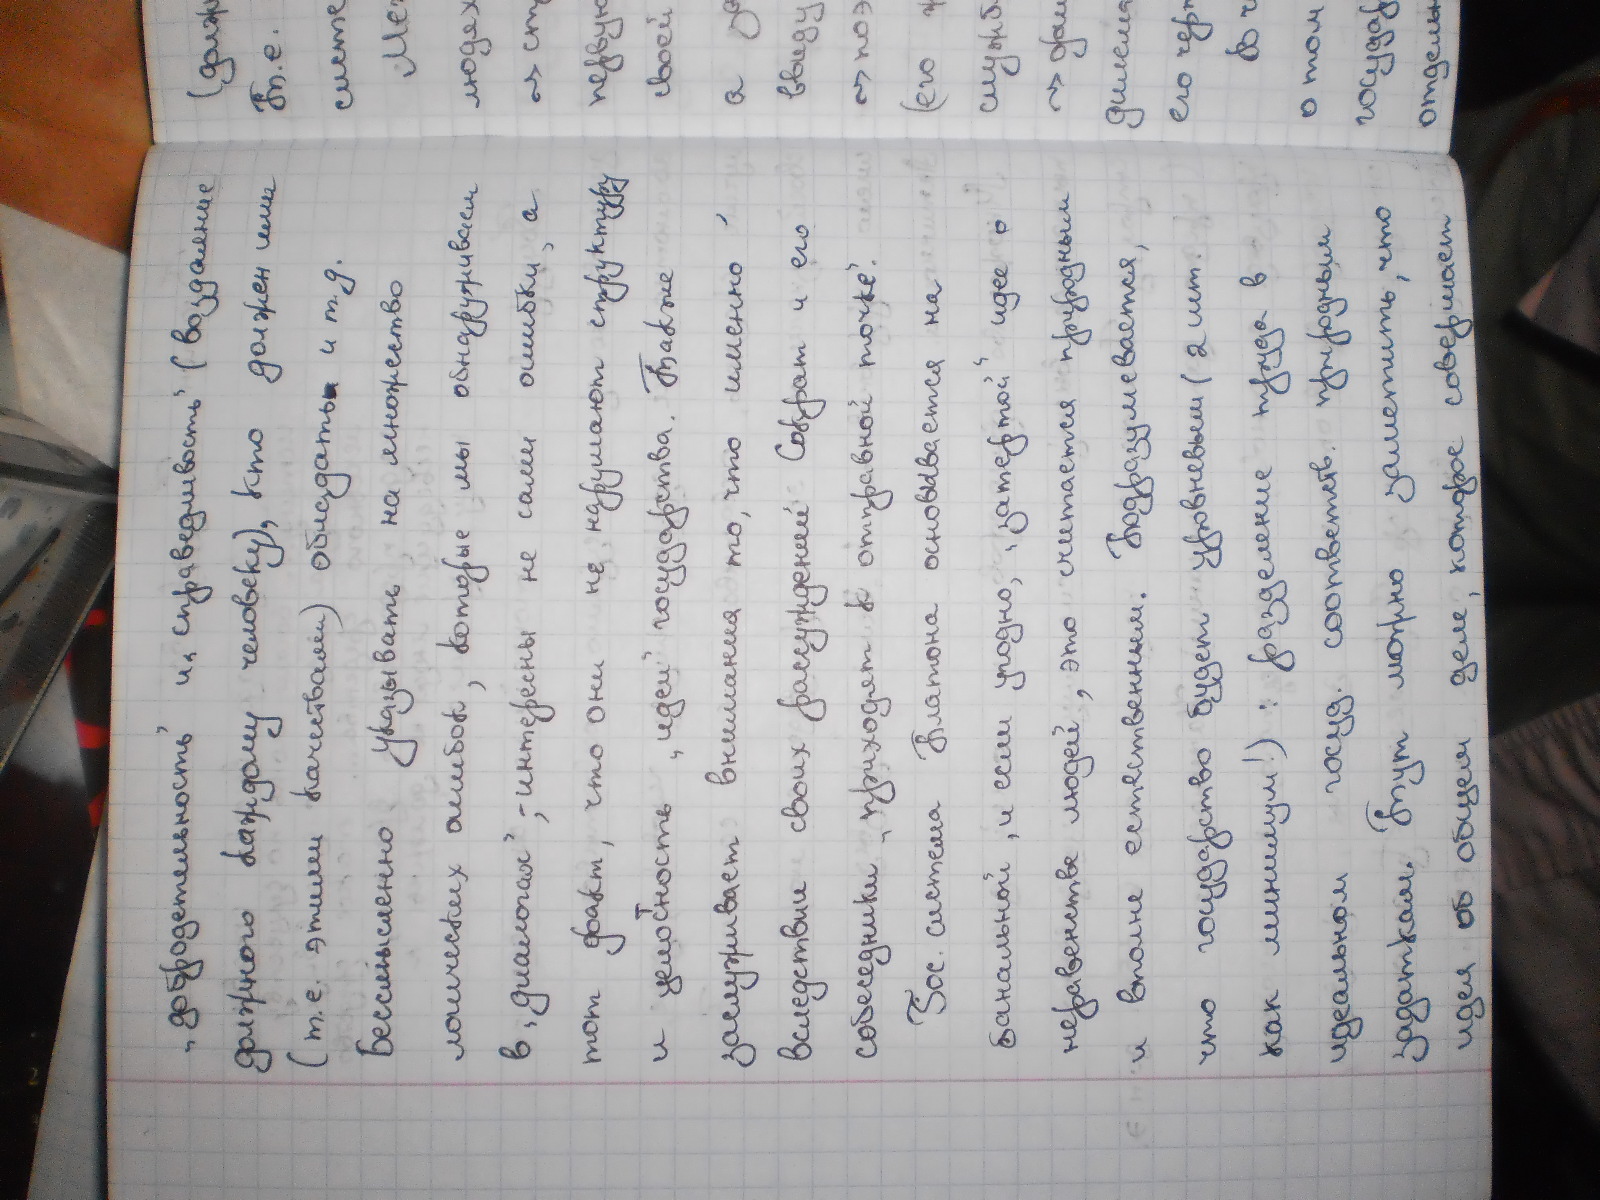 „добродетельность" и „справедливость" (воздаяние
должного каждому человеку), кто должен ими
(т.е. этими качествами) обладать и т.д.
Бессмысленно указывать на множество
логических ошибок, которые мы обнаруживаем
в „диалогах", - интересны не сами ошибки, а
тот факт, что они не нарушают структуру
и целостность „идей" государства. Также
заслуживает внимания то, что именно
вследствии своих рассуждений Сократ и его
собеседники „приходят к отправной точке".
Гос. система Платона основывается на
банальной, и если угодно, „затертой" идее о
неравенстве людей, это считается природным
и вполне естественным. Подразумевается,
что государство будет уровневым (2 шт.
как минимум!) : разделение труда в
идеальном госуд. соответств. природным
задаткам. Тут можно заметить, что
идея об общем деле, которое совершает
(долж
Т.е.
систе
людях
→ ст
первую
своей
а
ввиду
→ поэ
(его
служб
его черт
о том
государ
отдельн